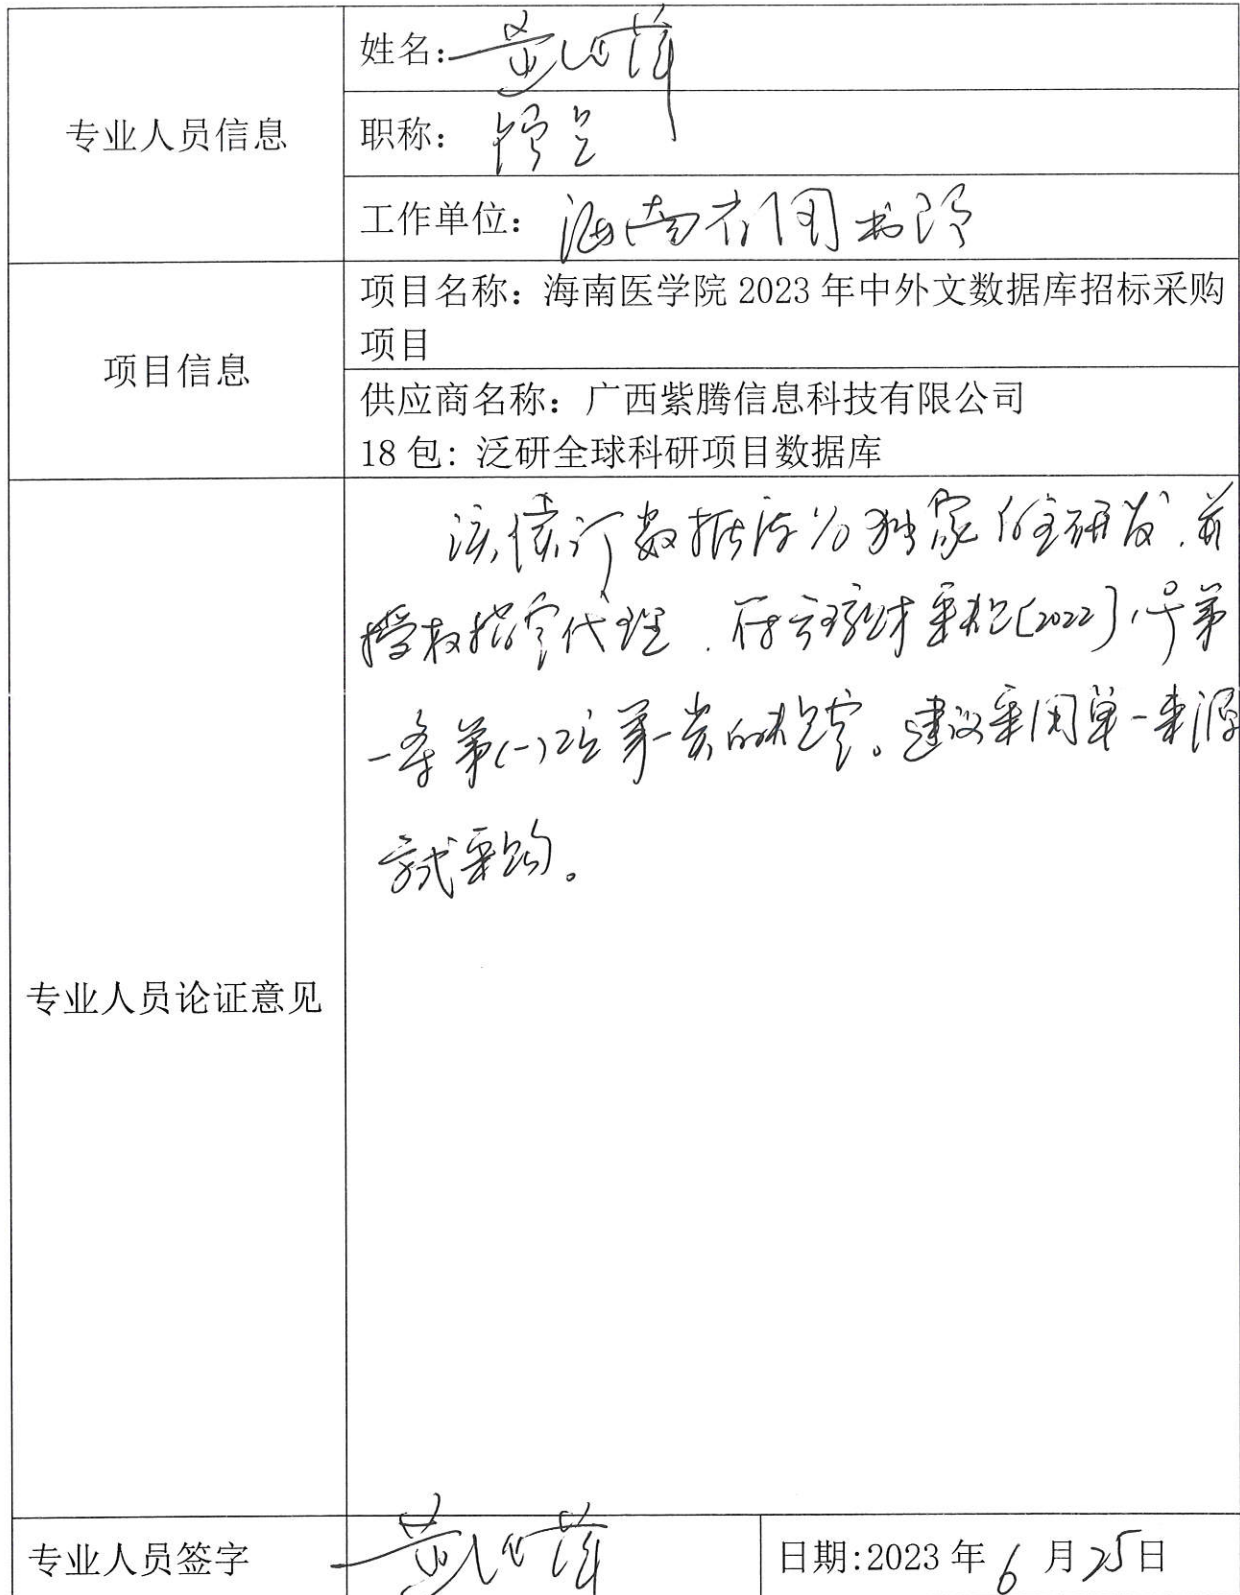 姓名：
专业人员信息
职称：
工作单位：海南省图书馆
项目名称：海南医学院 2023 年中外文数据库招标采购
项目
项目信息
供应商名称：广西紫腾信息科技有限公司
18 包：泛研全球科研项目数据库
该续订数据库为独家自主研发，并
授权指定代理．符合琼财采规[2022]1号第
一条第(一)项第一类的规定。建议采用单一来源
方式采购。
专业人员论证意见
专业人员签字
日期:2023 年 6 月 25日